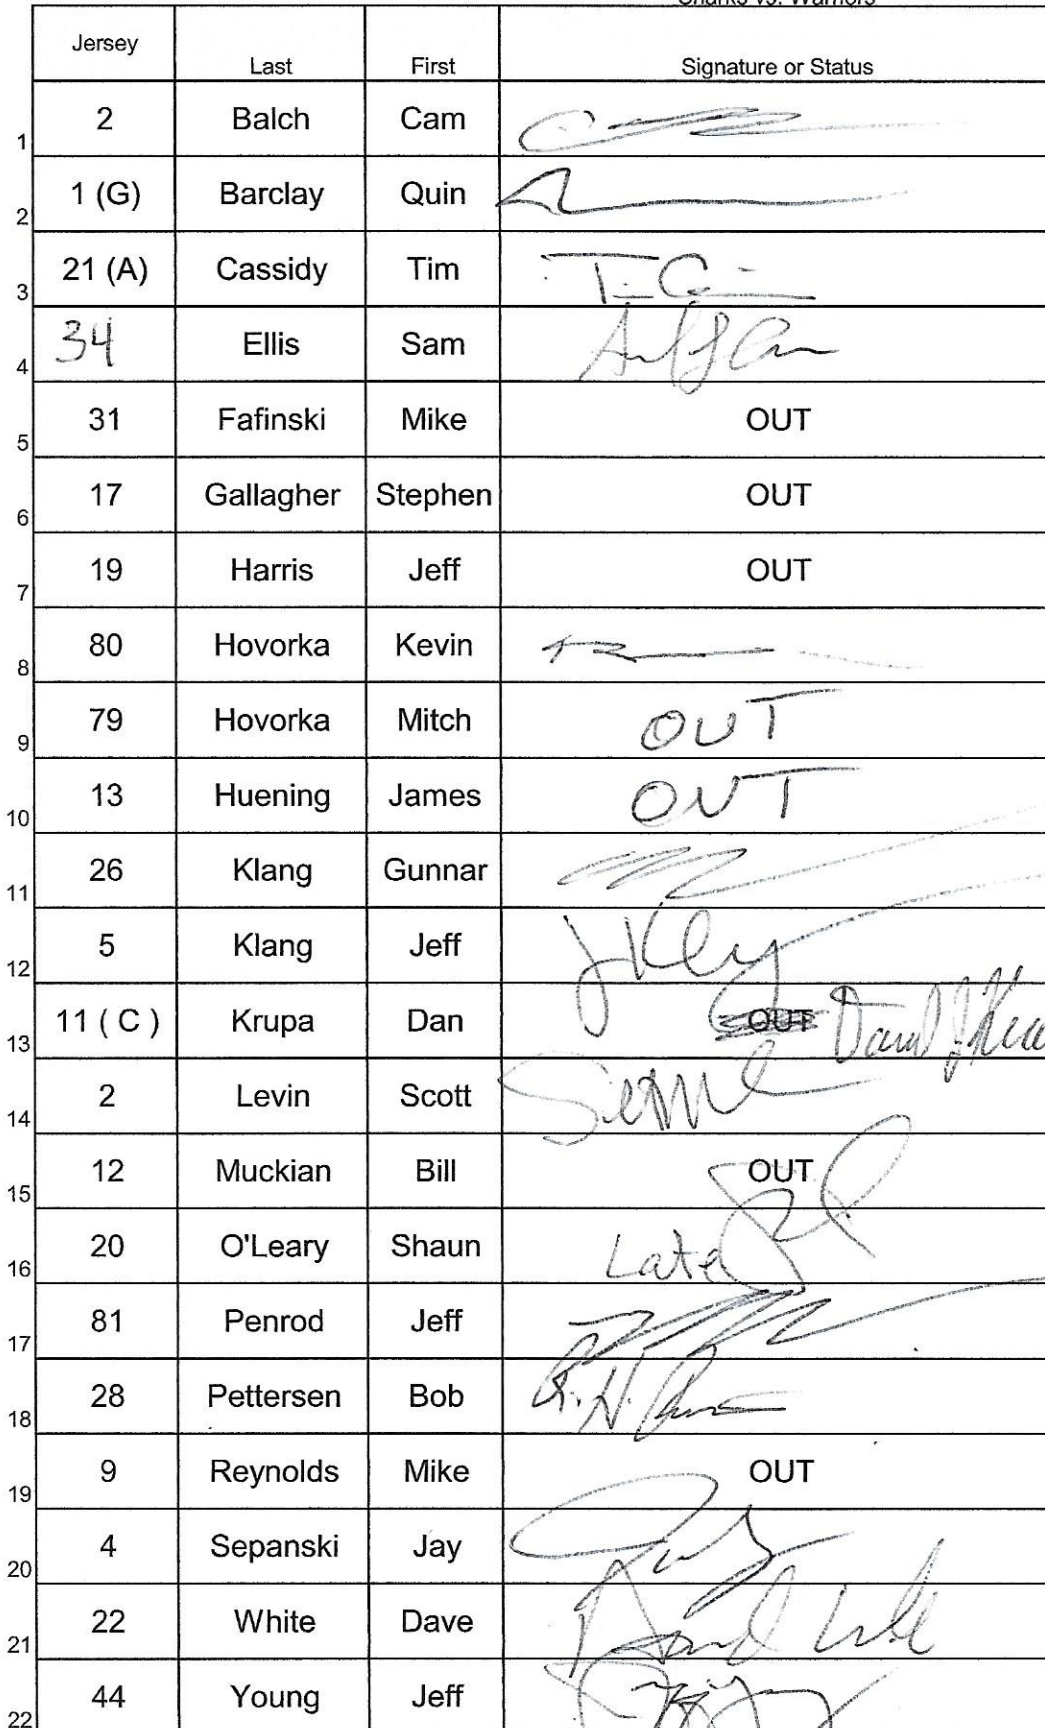 Sharks vs. Warriors
Jersey Last First Signature or Status
1 2 Balch Cam
2 1 (G) Barclay Quin
3 21 (A) Cassidy Tim
4 34 Ellis Sam
5 31 Fafinski Mike OUT
6 17 Gallagher Stephen OUT
7 19 Harris Jeff OUT
8 80 Hovorka Kevin
9 79 Hovorka Mitch OUT
10 13 Huening James OUT
11 26 Klang Gunnar
12 5 Klang Jeff
13 11 ( C ) Krupa Dan OUT
14 2 Levin Scott
15 12 Muckian Bill OUT
16 20 O'Leary Shaun Late
17 81 Penrod Jeff
18 28 Pettersen Bob
19 9 Reynolds Mike OUT
20 4 Sepanski Jay
21 22 White Dave
22 44 Young Jeff